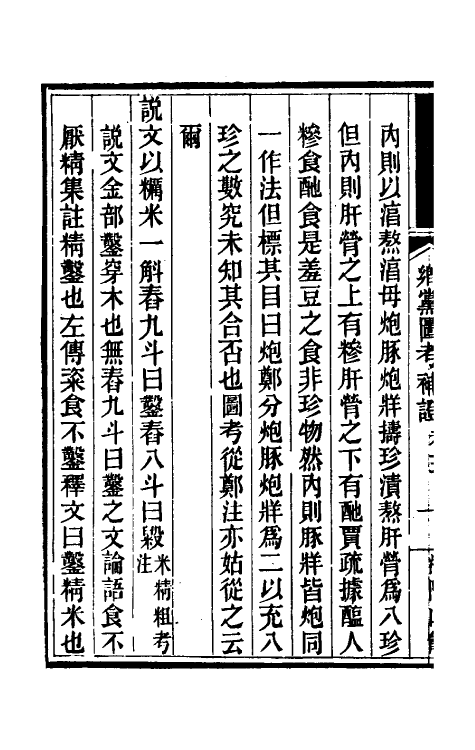 內則以湻熬湻毋炮豚炮牂擣珍漬熬肝膋爲八珍
但內則肝膋之上有糝肝膋之下有酏賈疏據醢人
糝食酏食是羞豆之食非珍物然內則豚牂皆炮同
一作法但標其目曰炮鄭分炮豚炮牂爲二以充八
珍之數究未知其合否也圖考從鄭注亦姑從之云
爾
說文以糲米一斛舂九斗曰鑿舂八斗曰毇米精粗考注
說文金部鑿穿木也無舂九斗曰鑿之文論語食不
厭精集註精鑿也左傳粢食不鑿釋文曰鑿精米也
鄉黨圖考補證